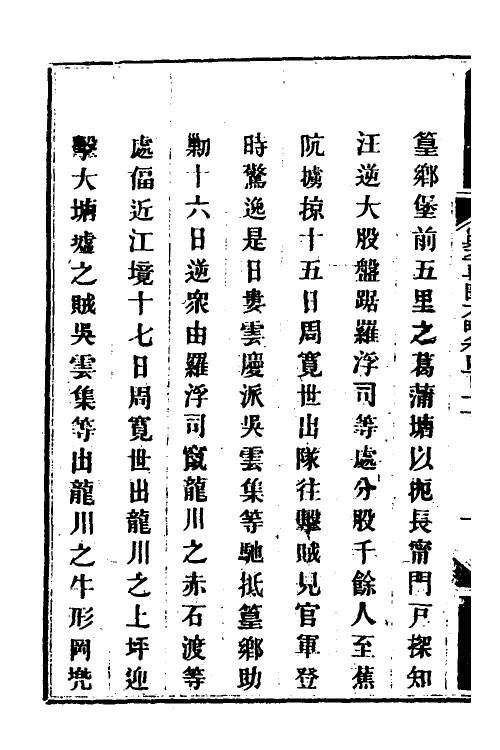 篁鄉堡前五里之葛蒲塘以扼長甯門戸探知
汪逆大股盤踞羅浮司等處分股千餘人至蕉
阬擄掠十五日周寬世出隊往擊賊見官軍登
時驚逸是日婁雲慶派吳雲集等馳抵篁鄉助
勦十六日逆衆由羅浮司竄龍川之赤石渡等
處偪近江境十七日周寬世出龍川之上坪迎
擊大塘墟之賊吳雲集等出龍川之牛形岡兠